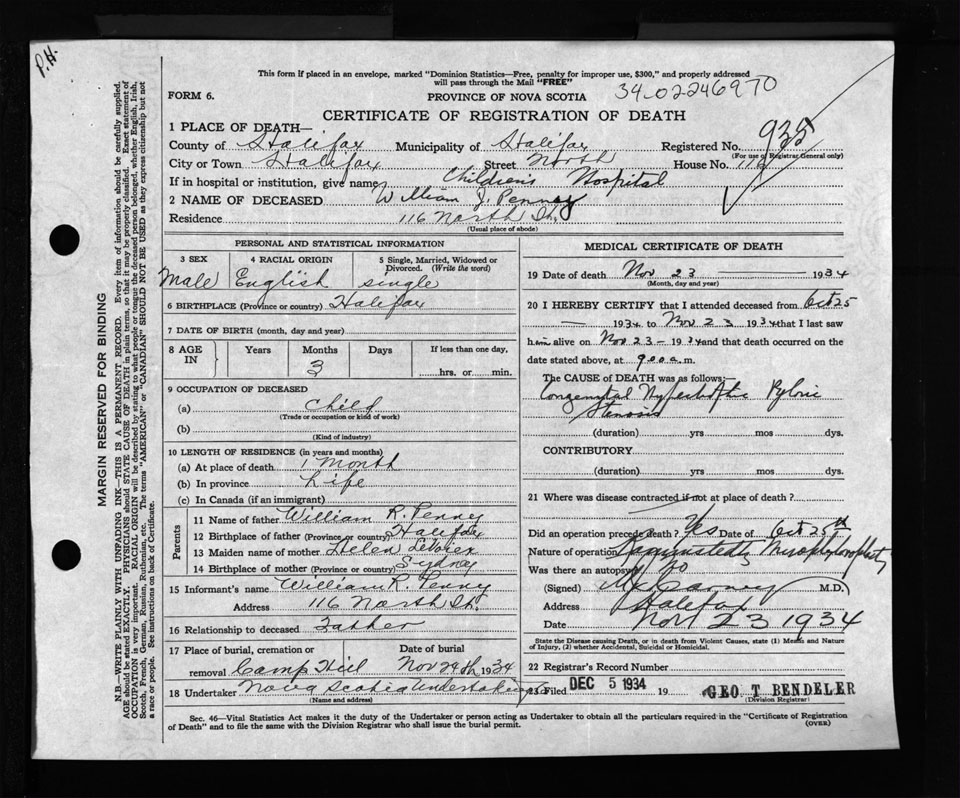 P.H.
This form if placed in an envelope, marked "Dominion Statistics—Free, penalty for improper use, $300," and properly addressed
will pass through the Mail "FREE"
34-02246970
FORM 6.
PROVINCE OF NOVA SCOTIA
CERTIFICATE OF REGISTRATION OF DEATH
1 PLACE OF DEATH—
County of Halifax Municipality of Halifax Registered No. 935
(For use of Registrar General only)
City or Town Halifax Street North House No. 116
If in hospital or institution, give name Children's Hospital
2 NAME OF DECEASED William J. Penney
Residence 116 North St.
(Usual place of abode)
PERSONAL AND STATISTICAL INFORMATION
3 SEX 4 RACIAL ORIGIN 5 Single, Married, Widowed or Divorced. (Write the word)
Male English single
6 BIRTHPLACE (Province or country) Halifax
7 DATE OF BIRTH (month, day and year)
8 AGE IN Years Months Days If less than one day,
3 hrs. or min.
9 OCCUPATION OF DECEASED
(a) Child
(Trade or occupation or kind of work)
(b)
(Kind of industry)
10 LENGTH OF RESIDENCE (in years and months)
(a) At place of death 1 month
(b) In province Life
(c) In Canada (if an immigrant)
Parents
11 Name of father William R. Penney
12 Birthplace of father (Province or country) Halifax
13 Maiden name of mother Helen
14 Birthplace of mother (Province or country) Sydney
15 Informant's name William R. Penney
Address 116 North St.
16 Relationship to deceased Father
17 Place of burial, cremation or removal Camp Hill Date of burial Nov 24th 1934
18 Undertaker Nova Scotia Undertaking Co
(Name and address)
MEDICAL CERTIFICATE OF DEATH
19 Date of death Nov 23 1934
(Month, day and year)
20 I HEREBY CERTIFY that I attended deceased from Oct 25
— 1934 to Nov 23 1934 that I last saw
him alive on Nov 23 - 1934 and that death occurred on the
date stated above, at 9.00 a.m.
The CAUSE of DEATH was as follows:—
Congenital Hypertrophic Pyloric
Stenosis
(duration) yrs mos dys.
CONTRIBUTORY
(duration) yrs mos dys.
21 Where was disease contracted if not at place of death?
Did an operation precede death? Yes Date of Oct 25th
Nature of operation
Was there an autopsy? No
(Signed) M.D.
Address Halifax
Date Nov 23 1934
State the Disease causing Death, or in death from Violent Causes, state (1) Means and Nature
of Injury, (2) whether Accidental, Suicidal or Homicidal.
22 Registrar's Record Number
23 Filed DEC 5 1934 19 GEO T BENDELER
(Division Registrar)
Sec. 46—Vital Statistics Act makes it the duty of the Undertaker or person acting as Undertaker to obtain all the particulars required in the "Certificate of Registration
of Death" and to file the same with the Division Registrar who shall issue the burial permit. (OVER)
MARGIN RESERVED FOR BINDING
N.B.—WRITE PLAINLY WITH UNFADING INK—THIS IS A PERMANENT RECORD. Every item of information should be carefully supplied.
AGE should be stated EXACTLY. PHYSICIANS should STATE CAUSE OF DEATH in plain terms, so that it may be properly classified. Exact statement of
OCCUPATION is very important. RACIAL ORIGIN will be described by stating to what people or tongue the deceased person belonged, whether English, Irish,
Scotch, French, German, Russian, Ruthenian, etc. The terms "AMERICAN" or "CANADIAN" SHOULD NOT BE USED as they express citizenship but not
a race or people. See instructions on back of Certificate.